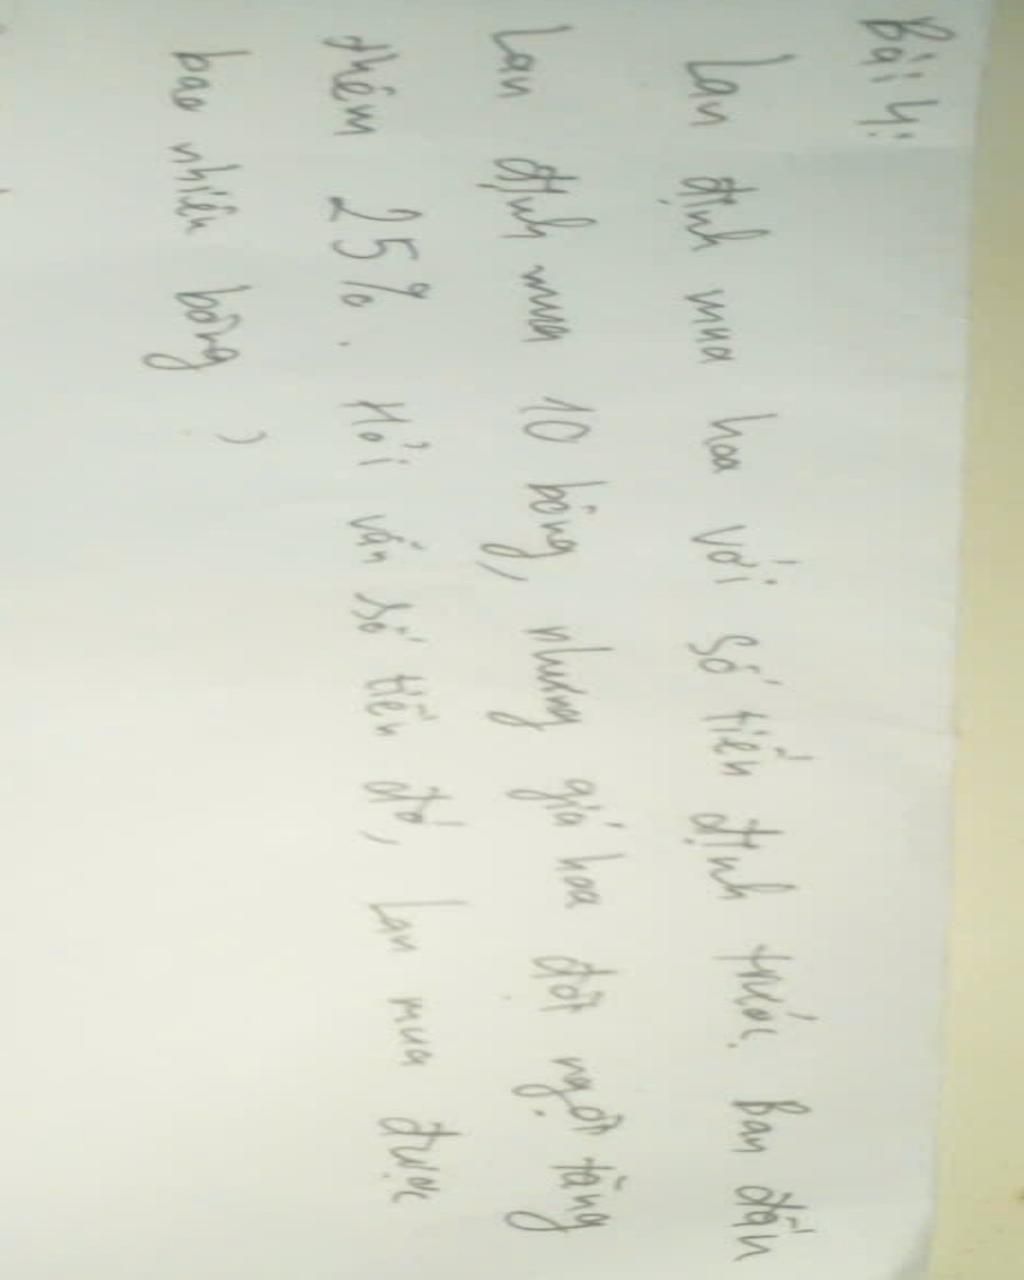 Bài 4:
Lan định mua hoa với số tiền định trước. Ban đầu
Lan định mua 10 bông, nhưng giá hoa đột ngột tăng
thêm 25%. Hỏi vẫn số tiền đó, Lan mua được
bao nhiêu bông?